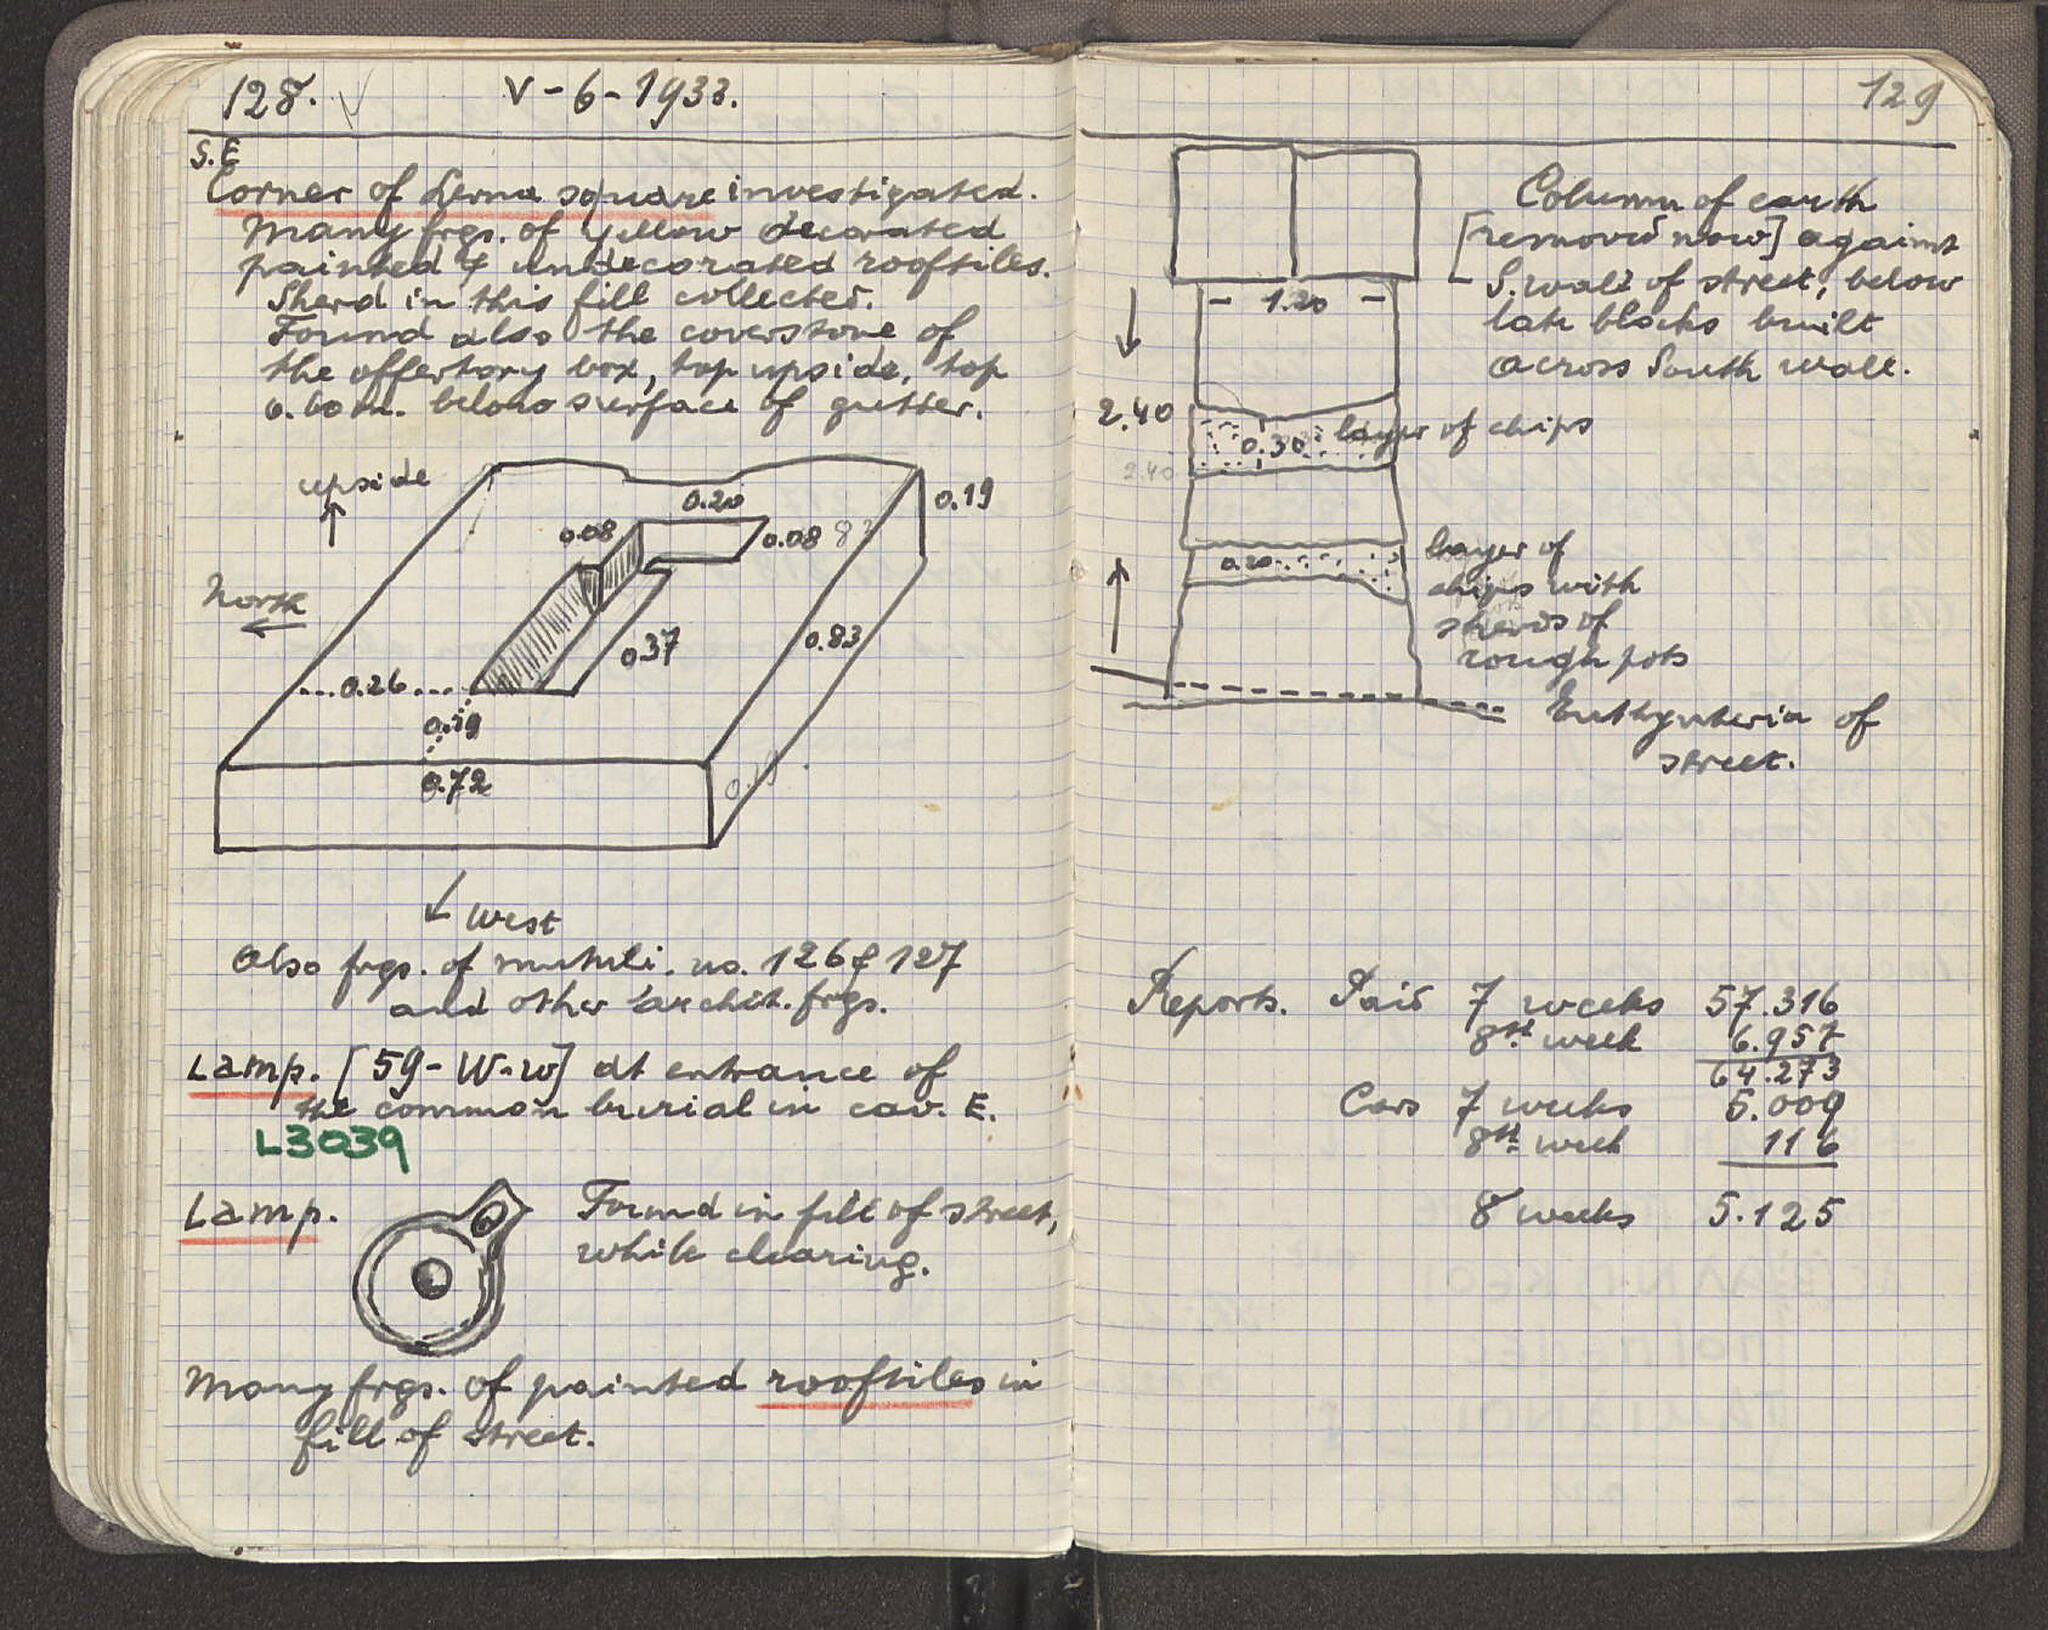 128.
V-6-1933.
S.E
Corner of Lerna square investigated.
Many frgs. of yellow decorated
painted & undecorated rooftiles.
Sherd in this fill collected.
Found also the coverstone of
the offertory box, top upside, top
0.60m. below surface of gutter.
upside
0.20
0.19
0.08
0.08
North
0.37
0.83
...0.26...
0.19
0.72
0.19
West
Also frgs. of mutuli. no. 126 & 127
and other archit. frgs.
Lamp. [59-W-w] at entrance of
the common burial in cav. E.
L3039
Lamp.
Found in fill of street,
while clearing.
Many frgs. of painted rooftiles in
fill of street.
129
Column of earth
[removed now] against
S. wall of street, below
late blocks built
across South wall.
- 1.20 -
2.40
0.30
layer of chips
2.40
0.20
layer of
chips with
sherds of
rough pots
Euthynteria of
street.
Reports. Paid 7 weeks 57.316
8th week 6.957
64.273
Cars 7 weeks 5.009
8th week 116
8 weeks 5.125